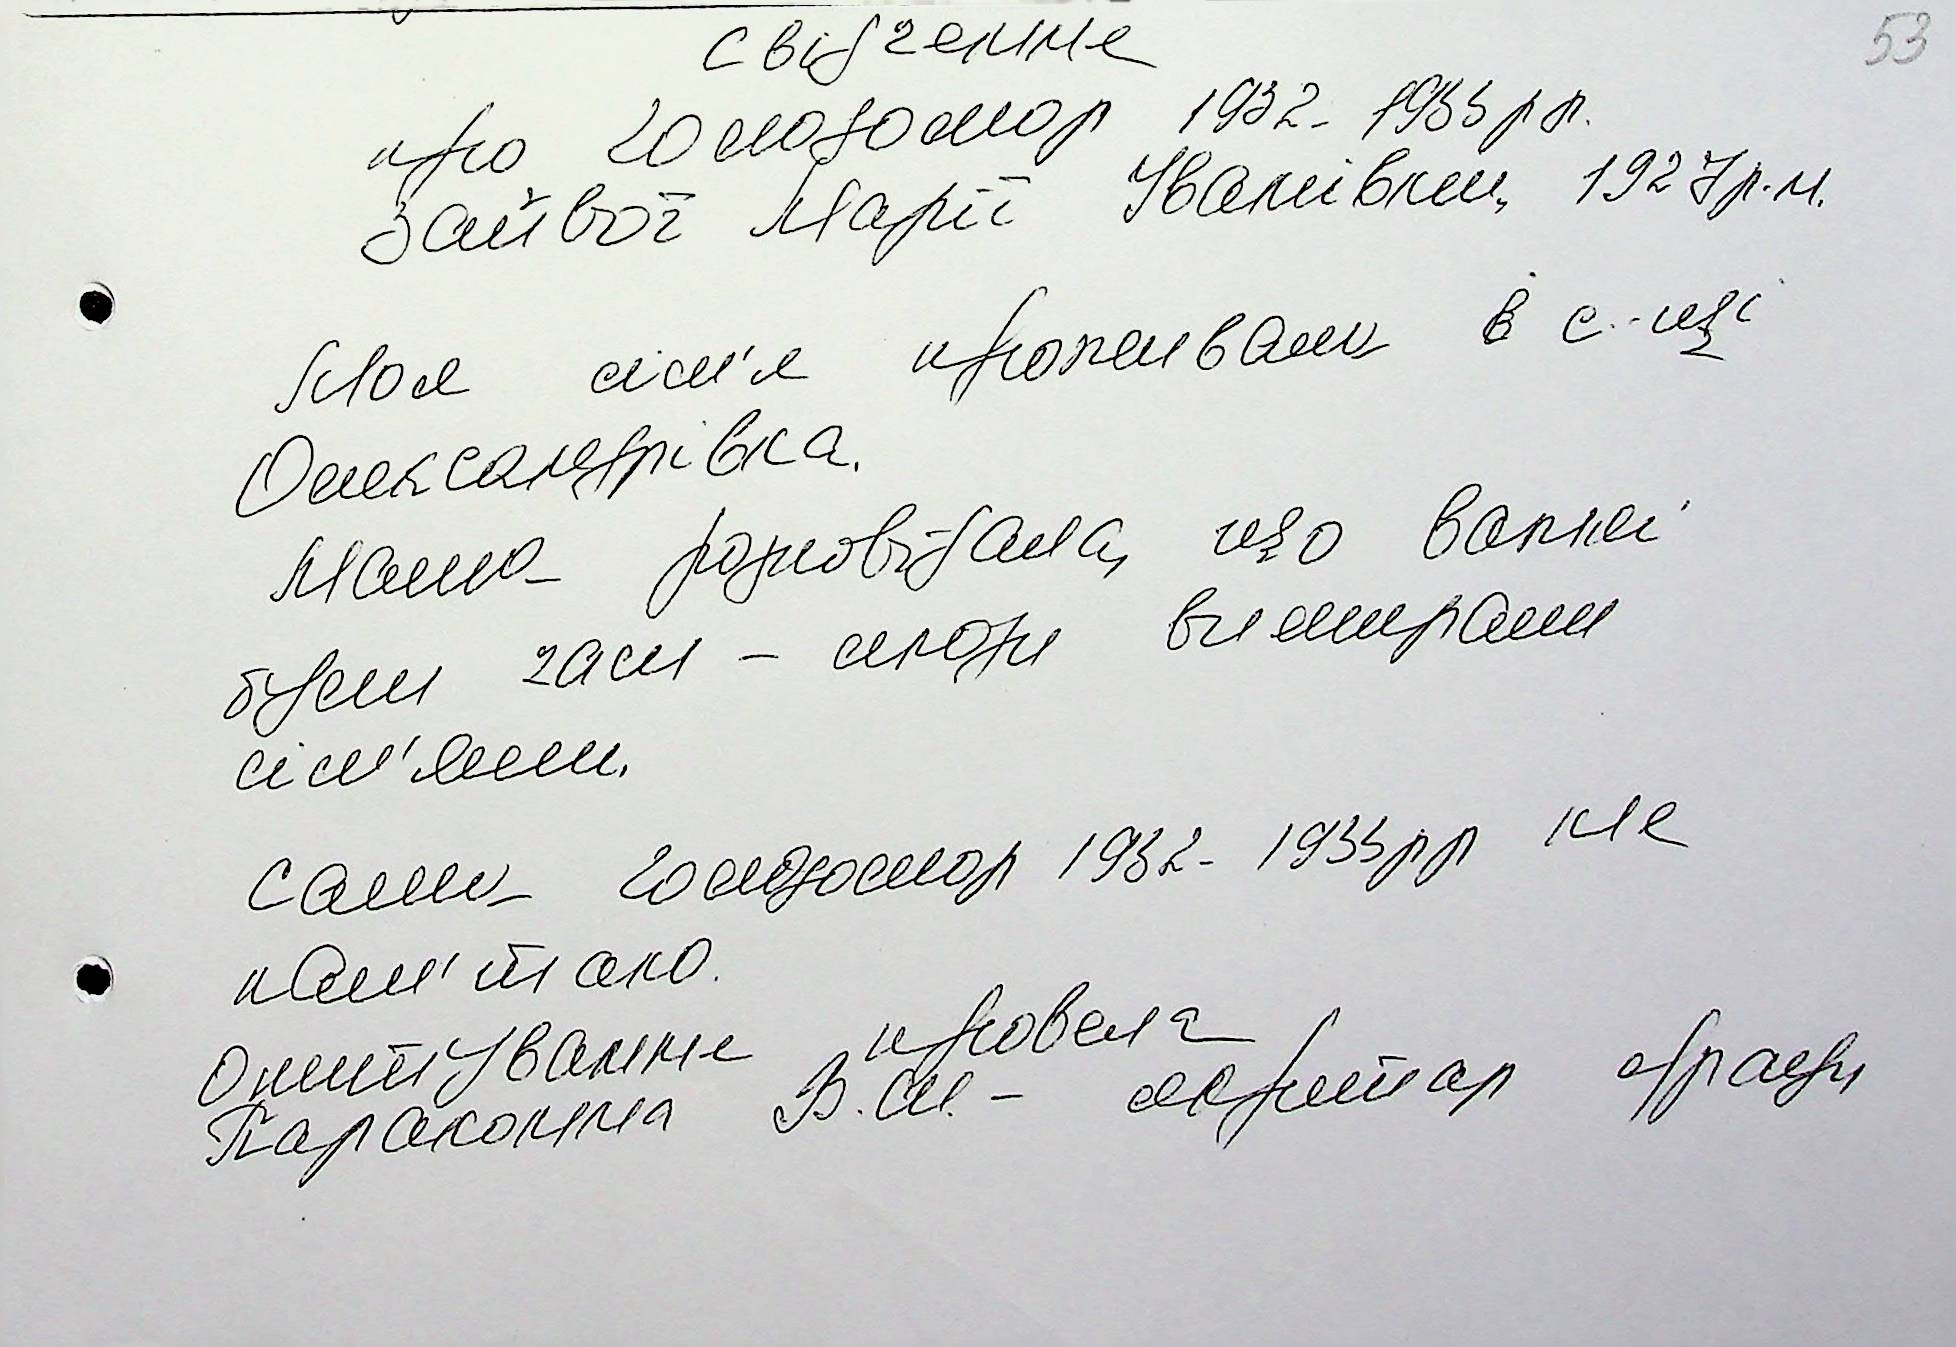 53
свідчення
про Голодомор 1932-1933рр.
Зайвої Марії Іванівни, 1927р.н.
Моя сім'я проживали в с-щі
Олександрівка.
Мама розповідала, що важкі
були часи - люди вимирали
сім'ями.
Сама голодомор 1932-1933рр не
пам'ятаю.
Опитування провела
В.М. - секретар сільради